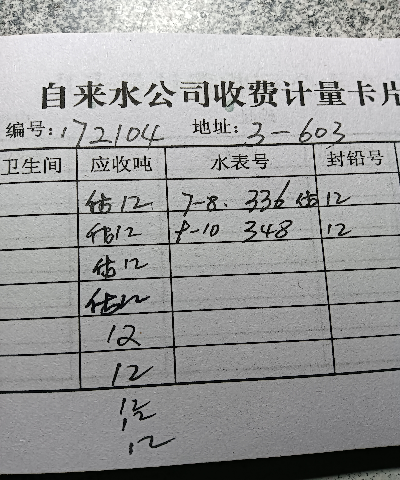 自来水公司收费计量卡片
编号: 172104 地址: 3-603
卫生间 应收吨 水表号 封铅号
估12 7-8. 336 估12
估12 9-10 348 12
估12
估12
12
12
12
12